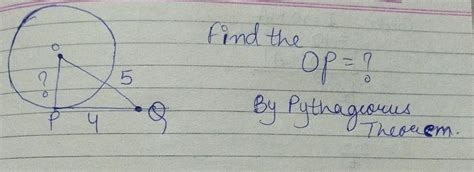 Find the
OP = ?
By Pythagorus
Theorem.
O
?
5
P
4
Q